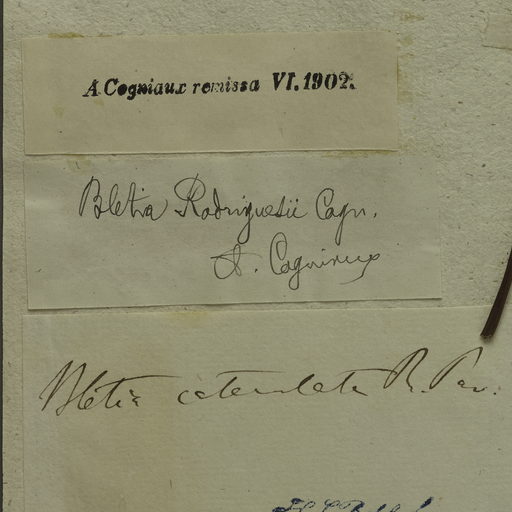 A Cogniaux remissa VI. 1902.
Bletia Rodriguesii Cogn.
A. Cogniaux
Bletia catenulata R. Pav.